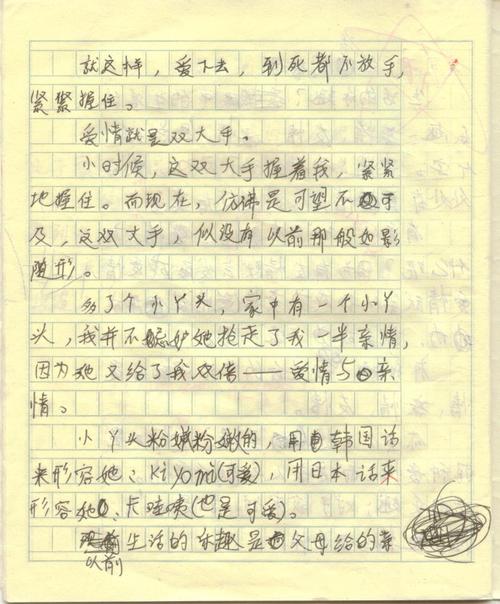 就这样，爱下去，到死都不放手，
紧紧握住。
爱情就是双大手。
小时候，这双大手握着我，紧紧
地握住。而现在，仿佛是可望不可
及，这双大手，似没有以前那般如影
随形。
多了个小丫头，家中有一个小丫
头，我并不嫉妒她抢走了我一半亲情，
因为她又给了我双倍——爱情与亲
情。
小丫头粉嫩粉嫩的，用韩国话
来形容她：kiyomi(可爱)，用日本话来
形容她：卡哇姨(也是可爱)。
生活的乐趣是父母给的亲
以前